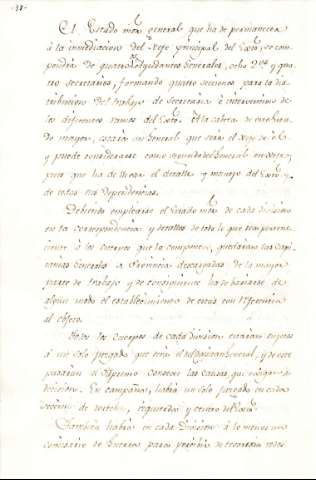 El Estado mor general que ha de permanecer
á la inmediacion del Xefe principal del Exto, se com-
pondria de quatro Ayudantes Generales, ocho 2os y qua-
tro secretarios, formando quatro secciones para la dis-
tribucion del trabajo de Secretaria é intervencion de
los diferentes ramos del Exto. A la cabeza de este Esta-
do mayor, estaria un General que seria el Xefe de él
y puede considerarse como segundo del General en Xefe,
pero que ha de llevar el detalle y manejo del Exto y
de todas sus dependencias.
Debiendo emplearse el Estado mor de cada division
en la correspondencia y detalles de todo lo que sea pertene-
ciente á los cuerpos que la componen, quedarian las Capi-
tanias Generales de Provincia descargadas de la mayor
parte de trabajo y de consiguiente ha de variarse de
algun modo el establecimiento de estas con
al objeto.
Todos los cuerpos de cada division estarian sujetos
á un solo juzgado que seria el del Capitan General, y de este
pasarian al Supremo Consejo las causas que exigiesen su
decision. En campaña, habria un solo juzgado en cada
seccion de derecha, izquierda y centro del Exto.
Tambien habria en cada Division á lo menos un
Comisario de Guerra para